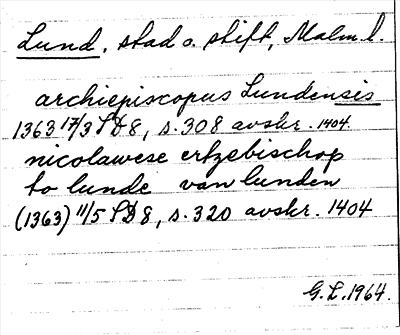 Lund, stad o. stift, Malm. l.
archiepiscopus Lundensis
1363 17/3 SD 8, s. 308 avskr. 1404.
nicolawese ertzebischop
to lunde van lunden
(1363) 11/5 SD 8, s. 320 avskr. 1404
G.L. 1964.